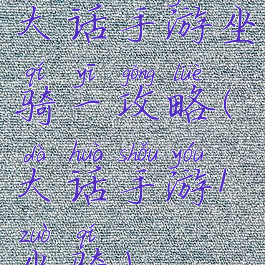 大话手游坐
qí yī gōng lüè
骑一攻略(
dà huà shǒu yóu
大话手游1
zuò qí
坐骑)